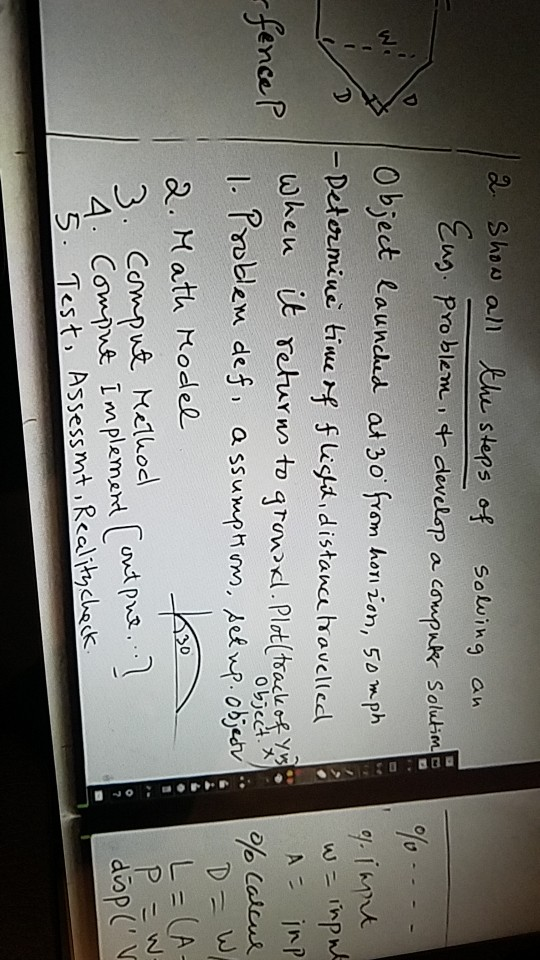 W
D
D
fence P
2. Show all the steps of solving an
Eng. problem, & develop a computer solution
Object launched at 30° from horizon, 50 mph
- Determine time of flight, distance travelled
when it returns to ground. Plot (track of Y vs X)
Object.
1. Problem def, assumption, setup. Object
30
2. Math Model
3. Comput Method
4. Comput Implement [output...]
5. Test, Assessmt, Reality check.
% - - - -
% input
W = input
A = inp
% Calcul
D = W/
L = (A-
P = W
disp('